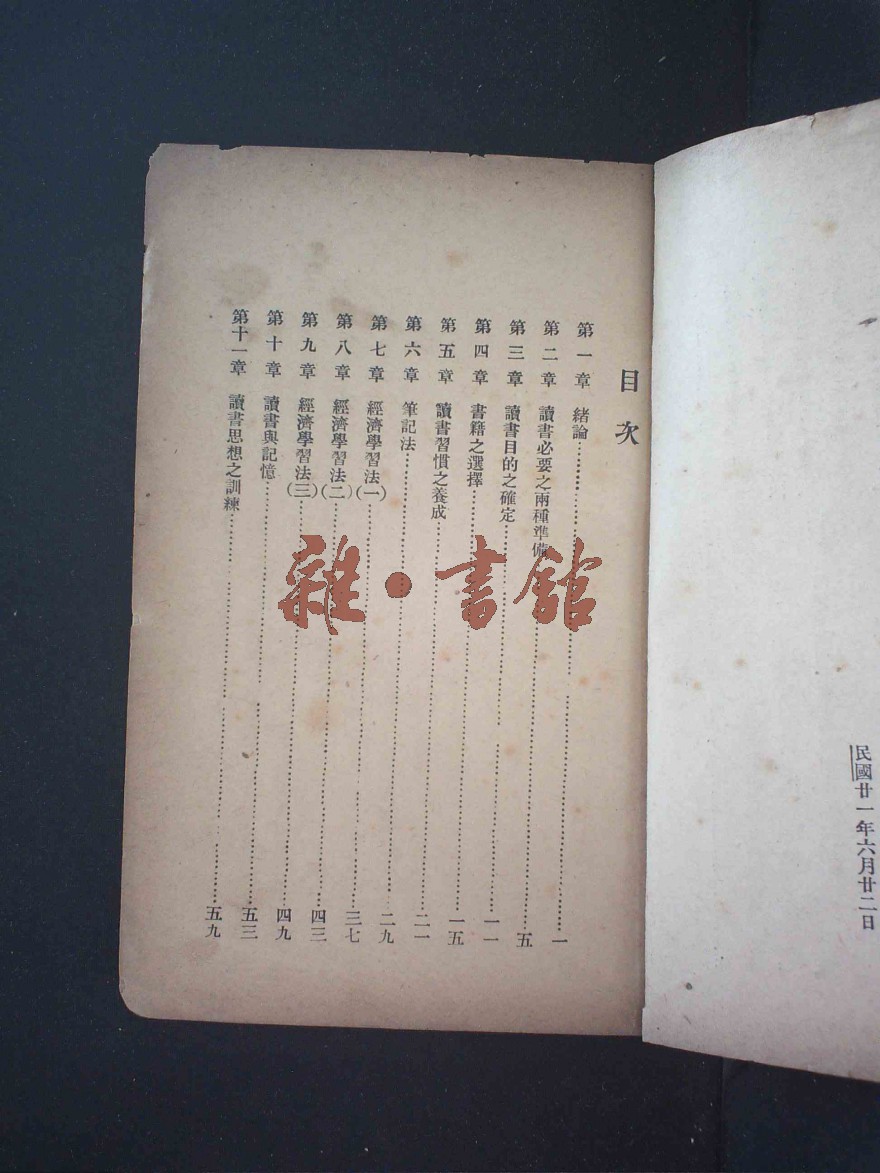 民國廿一年六月廿二日
目次
第一章 緒論……一
第二章 讀書必要之兩種準備……五
第三章 讀書目的之確定……一一
第四章 書籍之選擇……一五
第五章 讀書習慣之養成……二一
第六章 筆記法……二九
第七章 經濟學習法(一)……三七
第八章 經濟學習法(二)……四三
第九章 經濟學習法(三)……四九
第十章 讀書與記憶……五三
第十一章 讀書思想之訓練……五九
雜·書館